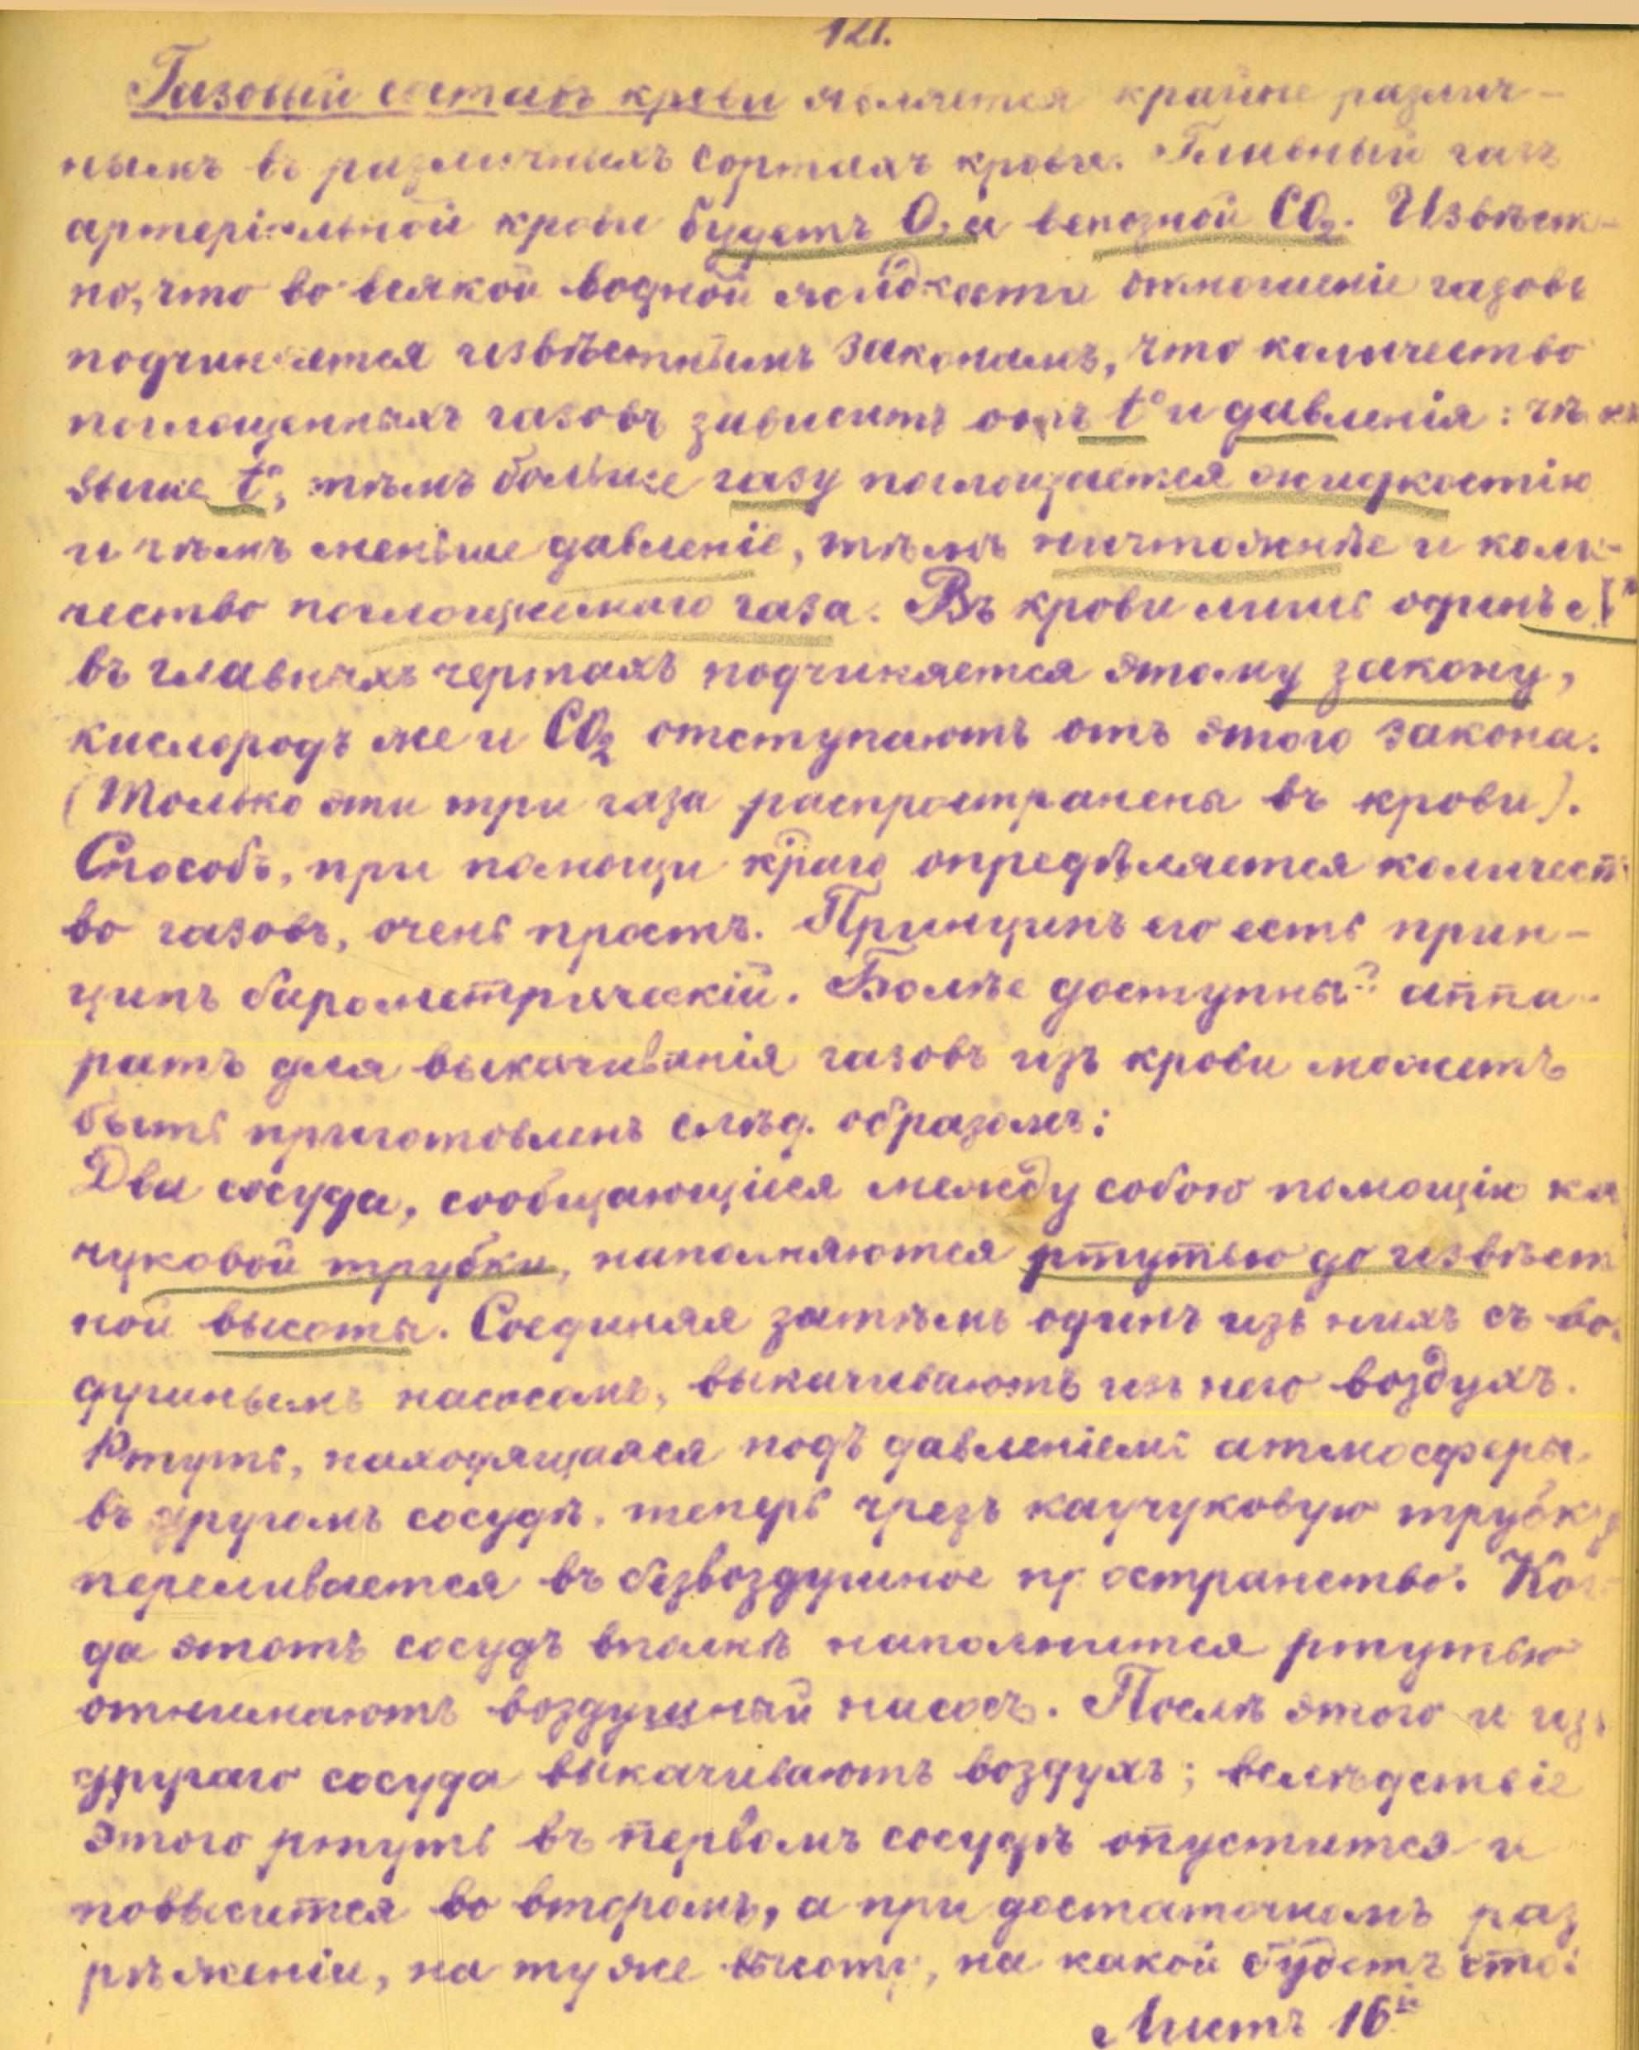 121.
Газовый составъ крови является крайне различ-
нымъ въ различныхъ сортахъ крови. Главный газъ
артеріальной крови будетъ O, а венозной CO2. Извѣст-
но, что во всякой водной жидкости отношеніе газовъ
подчиняется извѣстнымъ законамъ, что количество
поглощенныхъ газовъ зависитъ отъ t° и давленія: чѣмъ
выше t°, тѣмъ больше газу поглощается жидкостію
и чѣмъ меньше давленіе, тѣмъ ничтожнѣе и коли-
чество поглощаемаго газа. Въ крови лишь одинъ
въ главныхъ чертахъ подчиняется этому закону,
кислородъ же и CO2 отступаютъ отъ этого закона.
(Только эти три газа распространены въ крови).
Способъ, при помощи к̈раго опредѣляется количест
во газовъ, очень простъ. Принципъ его есть прин-
ципъ барометрическій. Болѣе доступный аппа-
ратъ для выкачиванія газовъ изъ крови можетъ
быть приготовленъ слѣд. образомъ:
Два сосуда, сообщающіеся между собою помощію ка
чуковой трубки, наполняются ртутью до извѣст
ной высоты. Соединяя затѣмъ одинъ изъ нихъ съ во
душнымъ насосомъ, выкачиваютъ изъ него воздухъ.
Ртуть, находящаяся подъ давленіемъ атмосферы
въ другомъ сосудѣ, теперь чрезъ каучуковую трубку
переливается въ безвоздушное пространство. Ког-
да этотъ сосудъ вполнѣ наполнится ртутью
отнимаютъ воздушный насосъ. Послѣ этого и изъ
другаго сосуда выкачиваютъ воздухъ; вслѣдствіе
этого ртуть въ первомъ сосудѣ опустится и
повысится во второмъ, а при достаточномъ раз
рѣженіи, на ту же высоту, на какой будетъ сто
Листъ 16й